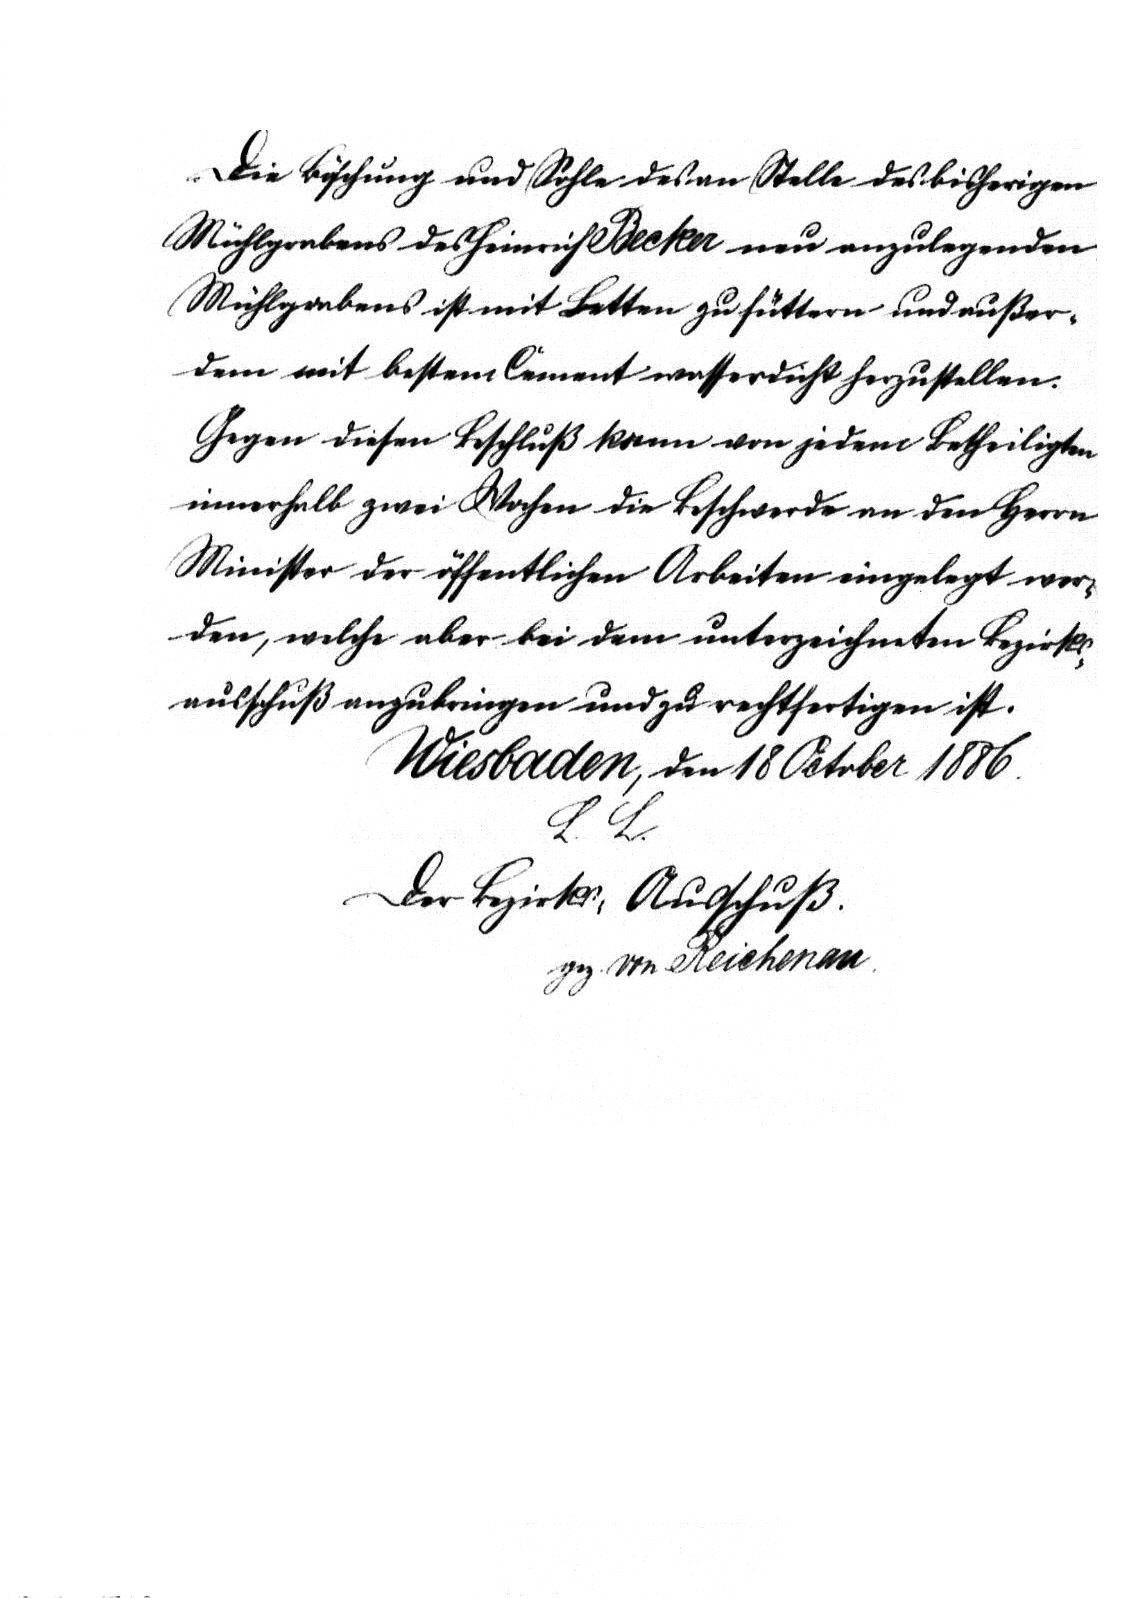 Die Böschung und Sohle des an Stelle des bisherigen
Mühlgrabens des Heinrich Becker neu anzulegenden
Mühlgrabens ist mit Letten zu füttern und außer-
dem mit bestem Cement wasserdicht herzustellen.
Gegen diesen Beschluß kann von jedem Betheiligten
innerhalb zwei Wochen die Beschwerde an den Herrn
Minister der öffentlichen Arbeiten eingelegt wer-
den, welche aber bei dem unterzeichneten Bezirks-
ausschuß anzubringen und zu rechtfertigen ist.
Wiesbaden, den 18 October 1886.
L. S.
Der Bezirks-Ausschuß.
gez. von Reichenau.